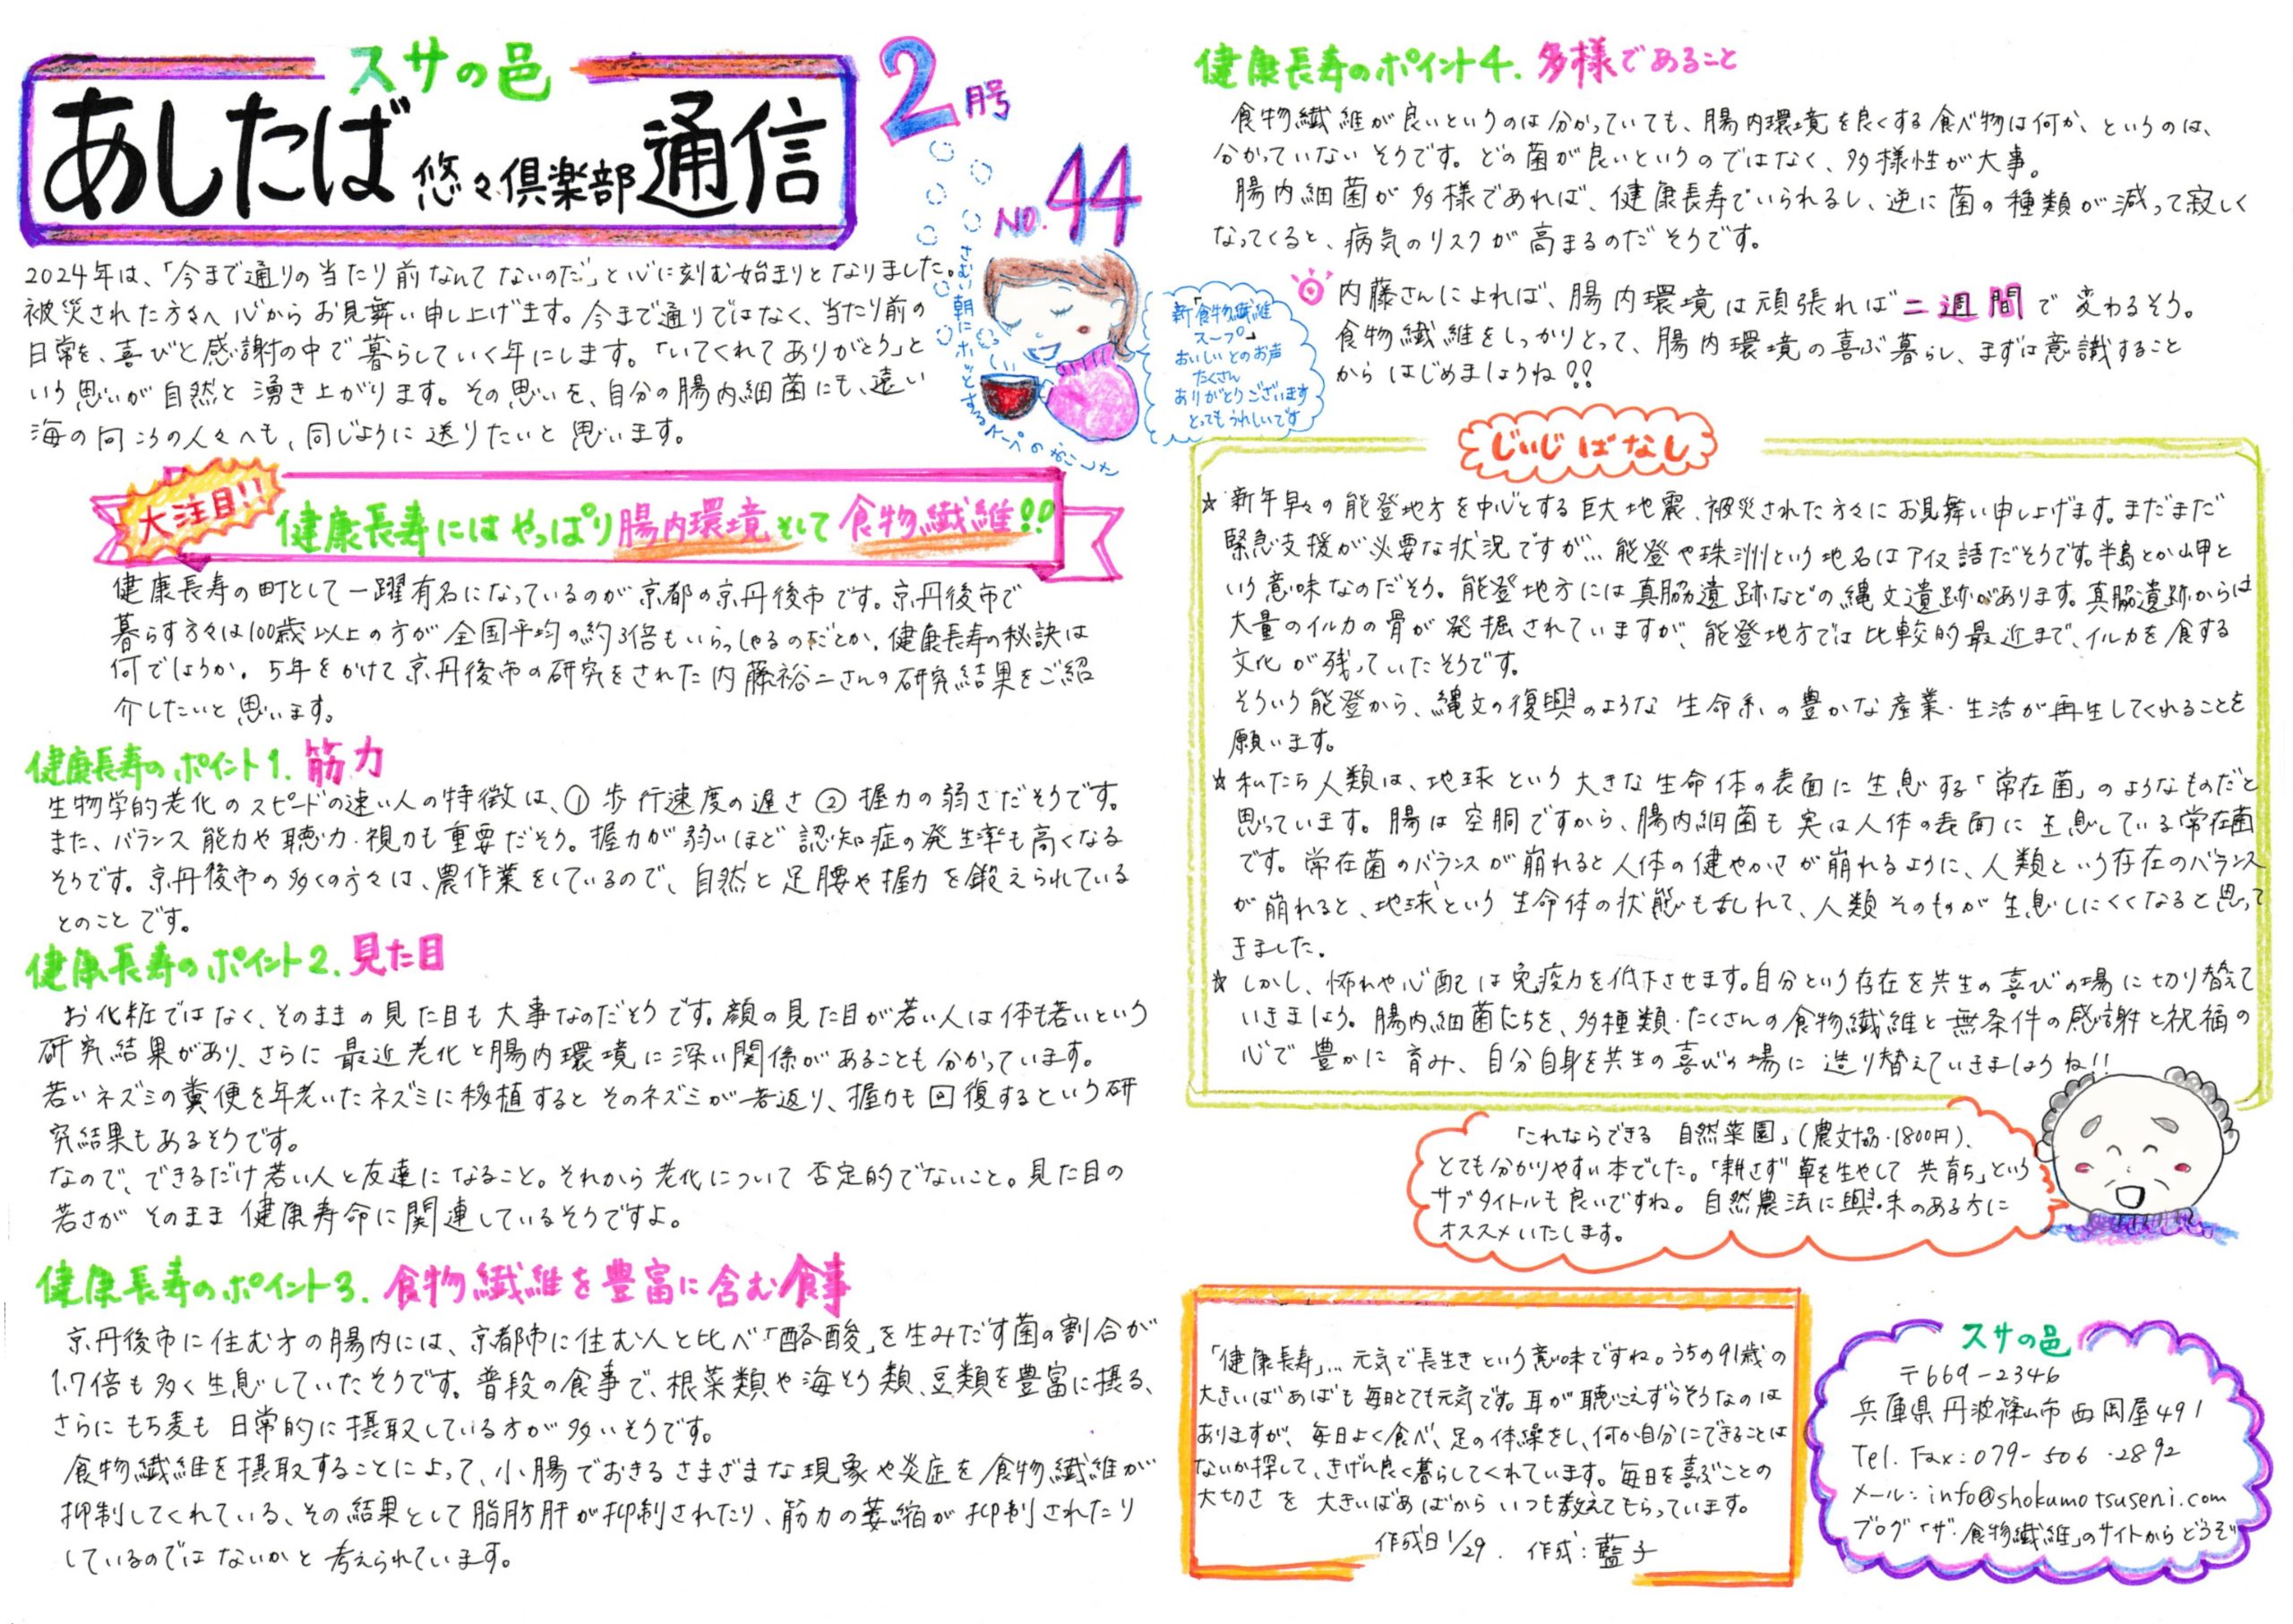 スサの邑
あしたば悠々倶楽部通信
2月号
NO.44
2024年は、「今まで通りの当たり前なんてないのだ」と心に刻む始まりとなりました。
被災された方々へ心からお見舞い申し上げます。今まで通りではなく、当たり前の
日常を、喜びと感謝の中で暮らしていく年にします。「いてくれてありがとう」と
いう思いが自然と湧き上がります。その思いを、自分の腸内細菌にも、遠い
海の向こうの人々へも、同じように送りたいと思います。
さむい朝にホッとする
新「食物繊維
スープ」
おいしいとのお声
たくさん
ありがとうございます
とってもうれしいです
大注目!!
健康長寿にはやっぱり腸内環境そして食物繊維!!
健康長寿の町として一躍有名になっているのが京都の京丹後市です。京丹後市で
暮らす方々は100歳以上の方が全国平均の約3倍もいらっしゃるのだとか。健康長寿の秘訣は
何でしょうか。5年をかけて京丹後市の研究をされた内藤裕二さんの研究結果をご紹
介したいと思います。
健康長寿のポイント1.筋力
生物学的老化のスピードの速い人の特徴は、①歩行速度の遅さ②握力の弱さだそうです。
また、バランス能力や聴力・視力も重要だそう。握力が弱いほど認知症の発生率も高くなる
そうです。京丹後市の多くの方々は、農作業をしているので、自然と足腰や握力を鍛えられている
とのことです。
健康長寿のポイント2.見た目
お化粧ではなく、そのままの見た目も大事なのだそうです。顔の見た目が若い人は体も若いという
研究結果があり、さらに最近老化と腸内環境に深い関係があることも分かっています。
若いネズミの糞便を年老いたネズミに移植するとそのネズミが若返り、握力も回復するという研
究結果もあるそうです。
なので、できるだけ若い人と友達になること。それから老化について否定的でないこと。見た目の
若さがそのまま健康寿命に関連しているそうですよ。
健康長寿のポイント3.食物繊維を豊富に含む食事
京丹後市に住む方の腸内には、京都市に住む人と比べ「酪酸」を生みだす菌の割合が
1.7倍も多く生息していたそうです。普段の食事で、根菜類や海そう類、豆類を豊富に摂る、
さらにもち麦も日常的に摂取している方が多いそうです。
食物繊維を摂取することによって、小腸でおきるさまざまな現象や炎症を食物繊維が
抑制してくれている、その結果として脂肪肝が抑制されたり、筋力の萎縮が抑制されたり
しているのではないかと考えられています。
健康長寿のポイント4.多様であること
食物繊維が良いというのは分かっていても、腸内環境を良くする食べ物は何か、というのは、
分かっていないそうです。どの菌が良いというのではなく、多様性が大事。
腸内細菌が多様であれば、健康長寿でいられるし、逆に菌の種類が減って寂しく
なってくると、病気のリスクが高まるのだそうです。
内藤さんによれば、腸内環境は頑張れば二週間で変わるそう。
食物繊維をしっかりとって、腸内環境の喜ぶ暮らし、まずは意識すること
からはじめましょうね!!
じいじばなし
☆新年早々の能登地方を中心とする巨大地震、被災された方々にお見舞い申し上げます。まだまだ
緊急支援が必要な状況ですが…能登や珠洲という地名はアイヌ語だそうです。半島とか岬と
いう意味なのだそう。能登地方には真脇遺跡などの縄文遺跡があります。真脇遺跡からは
大量のイルカの骨が発掘されていますが、能登地方では比較的最近まで、イルカを食する
文化が残っていたそうです。
そういう能登から、縄文の復興のような生命系の豊かな産業・生活が再生してくれることを
願います。
☆私たち人類は、地球という大きな生命体の表面に生息する「常在菌」のようなものだと
思っています。腸は空胴ですから、腸内細菌も実は人体の表面に生息している常在菌
です。常在菌のバランスが崩れると人体の健やかさが崩れるように、人類という存在のバランス
が崩れると、地球という生命体の状態も乱れて、人類そのものが生息しにくくなると思って
きました。
☆しかし、怖れや心配は免疫力を低下させます。自分という存在を共生の喜びの場に切り替えて
いきましょう。腸内細菌たちを、多種類・たくさんの食物繊維と無条件の感謝と祝福の
心で豊かに育み、自分自身を共生の喜びの場に造り替えていきましょうね!!
「これならできる 自然菜園」(農文協・1800円)、
とても分かりやすい本でした。「耕さず草を生やして共育ち」という
サブタイトルも良いですね。自然農法に興味のある方に
オススメいたします。
「健康長寿」…元気で長生きという意味ですね。うちの91歳の
大きいばあばも毎日とても元気です。耳が聴こえずらそうなのは
ありますが、毎日よく食べ、足の体操をし、何か自分にできることは
ないか探して、きげん良く暮らしてくれています。毎日を喜ぶことの
大切さを大きいばあばからいつも教えてもらっています。
作成日1/29. 作成:藍子
スサの邑
〒669-2346
兵庫県丹波篠山市西岡屋491
Tel. Fax:079-506-2892
メール:info@shokumotsuseni.com
ブログ「ザ・食物繊維」のサイトからどうぞ